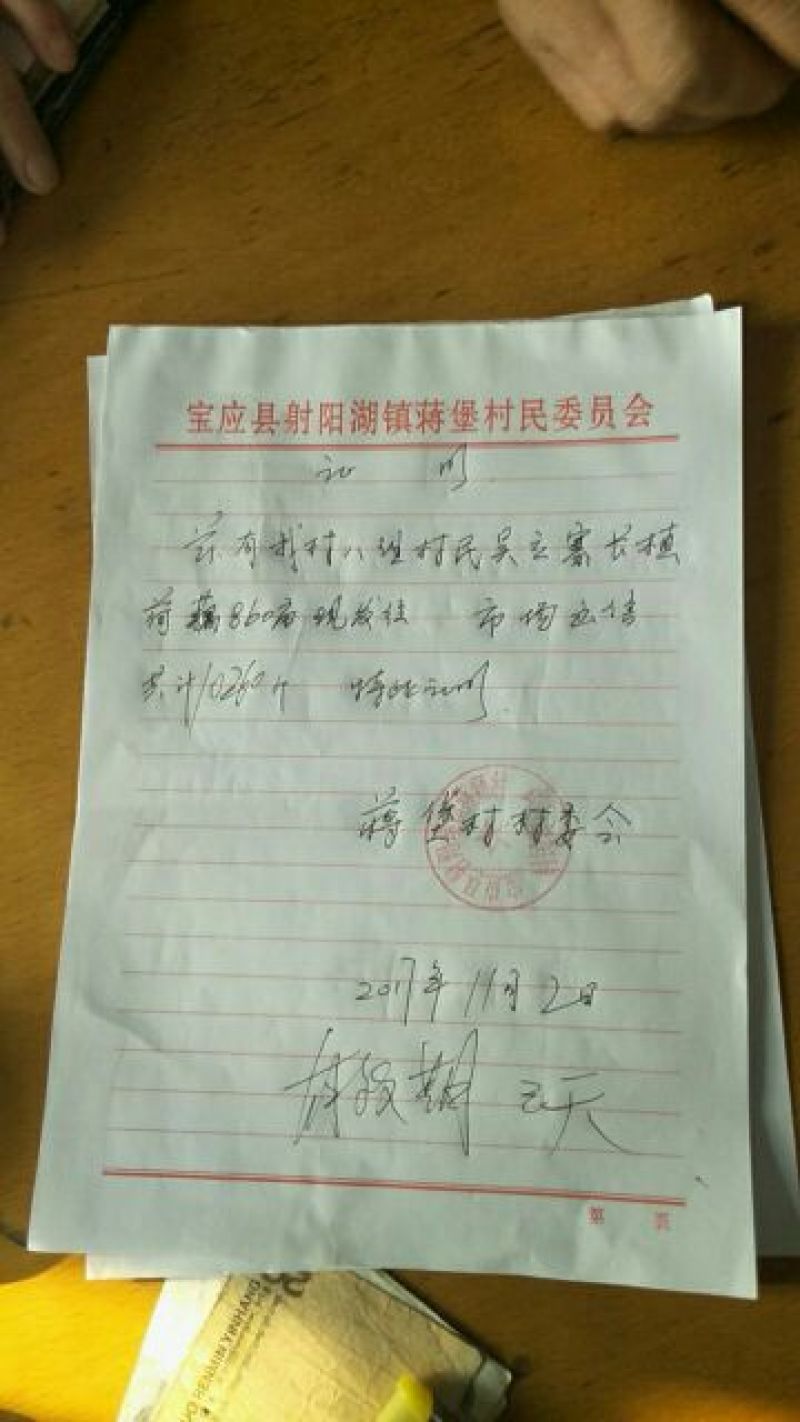 宝应县射阳湖镇蒋堡村民委员会
证 明
兹有我村八组村民吴立寨长植
荷藕860亩现发往 市场出售
共计10260斤 特此证明
蒋堡村村委会
2017年11月2日
第 页
RENMIN YINHANG